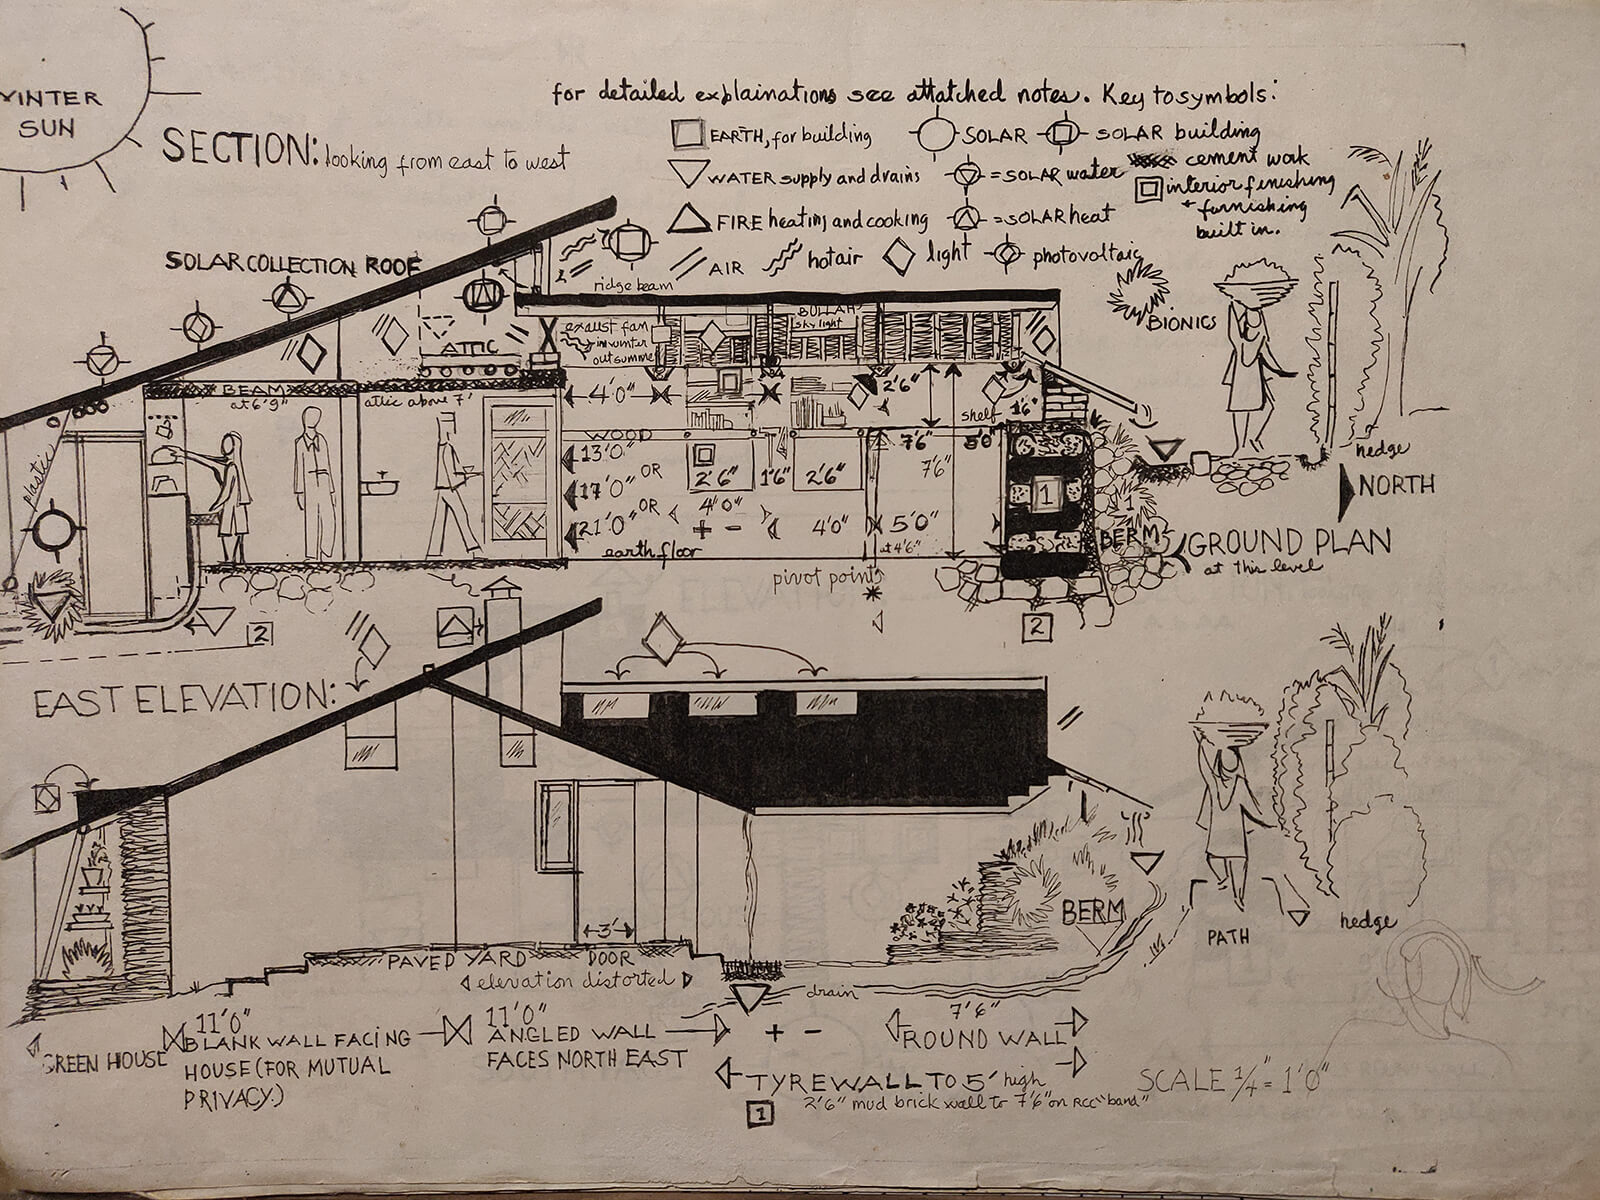 WINTER
SUN
SECTION: looking from east to west
for detailed explainations see attatched notes. Key to symbols:
EARTH, for building
SOLAR
SOLAR building
WATER supply and drains
= SOLAR water
cement work
interior finishing
+ furnishing
built in.
FIRE heating and cooking
= SOLAR heat
AIR
hot air
light
photovoltaic
SOLAR COLLECTION ROOF
ridge beam
BIONICS
exaust fan
in winter
out summer
sky light
ATTIC
BEAM
at 6'9"
attic above 7'
4'0"
2'6"
shelf
1'6"
plastic
WOOD
13'0"
OR
17'0"
OR
21'0"
2'6"
1'6"
2'6"
4'0"
+ -
4'0"
7'6"
5'0"
7'6"
5'0"
at 4'6"
1
1
earth floor
pivot point
*
BERM
hedge
NORTH
GROUND PLAN
at this level
2
2
EAST ELEVATION:
3'
PAVED YARD
DOOR
elevation distorted
drain
BERM
PATH
hedge
GREEN HOUSE
11'0"
BLANK WALL FACING
HOUSE (FOR MUTUAL
PRIVACY.)
11'0"
ANGLED WALL
FACES NORTH EAST
+ -
7'6"
ROUND WALL
TYRE WALL TO 5' high
1
2'6" mud brick wall to 7'6" on RCC "band"
SCALE 1/4" = 1'0"